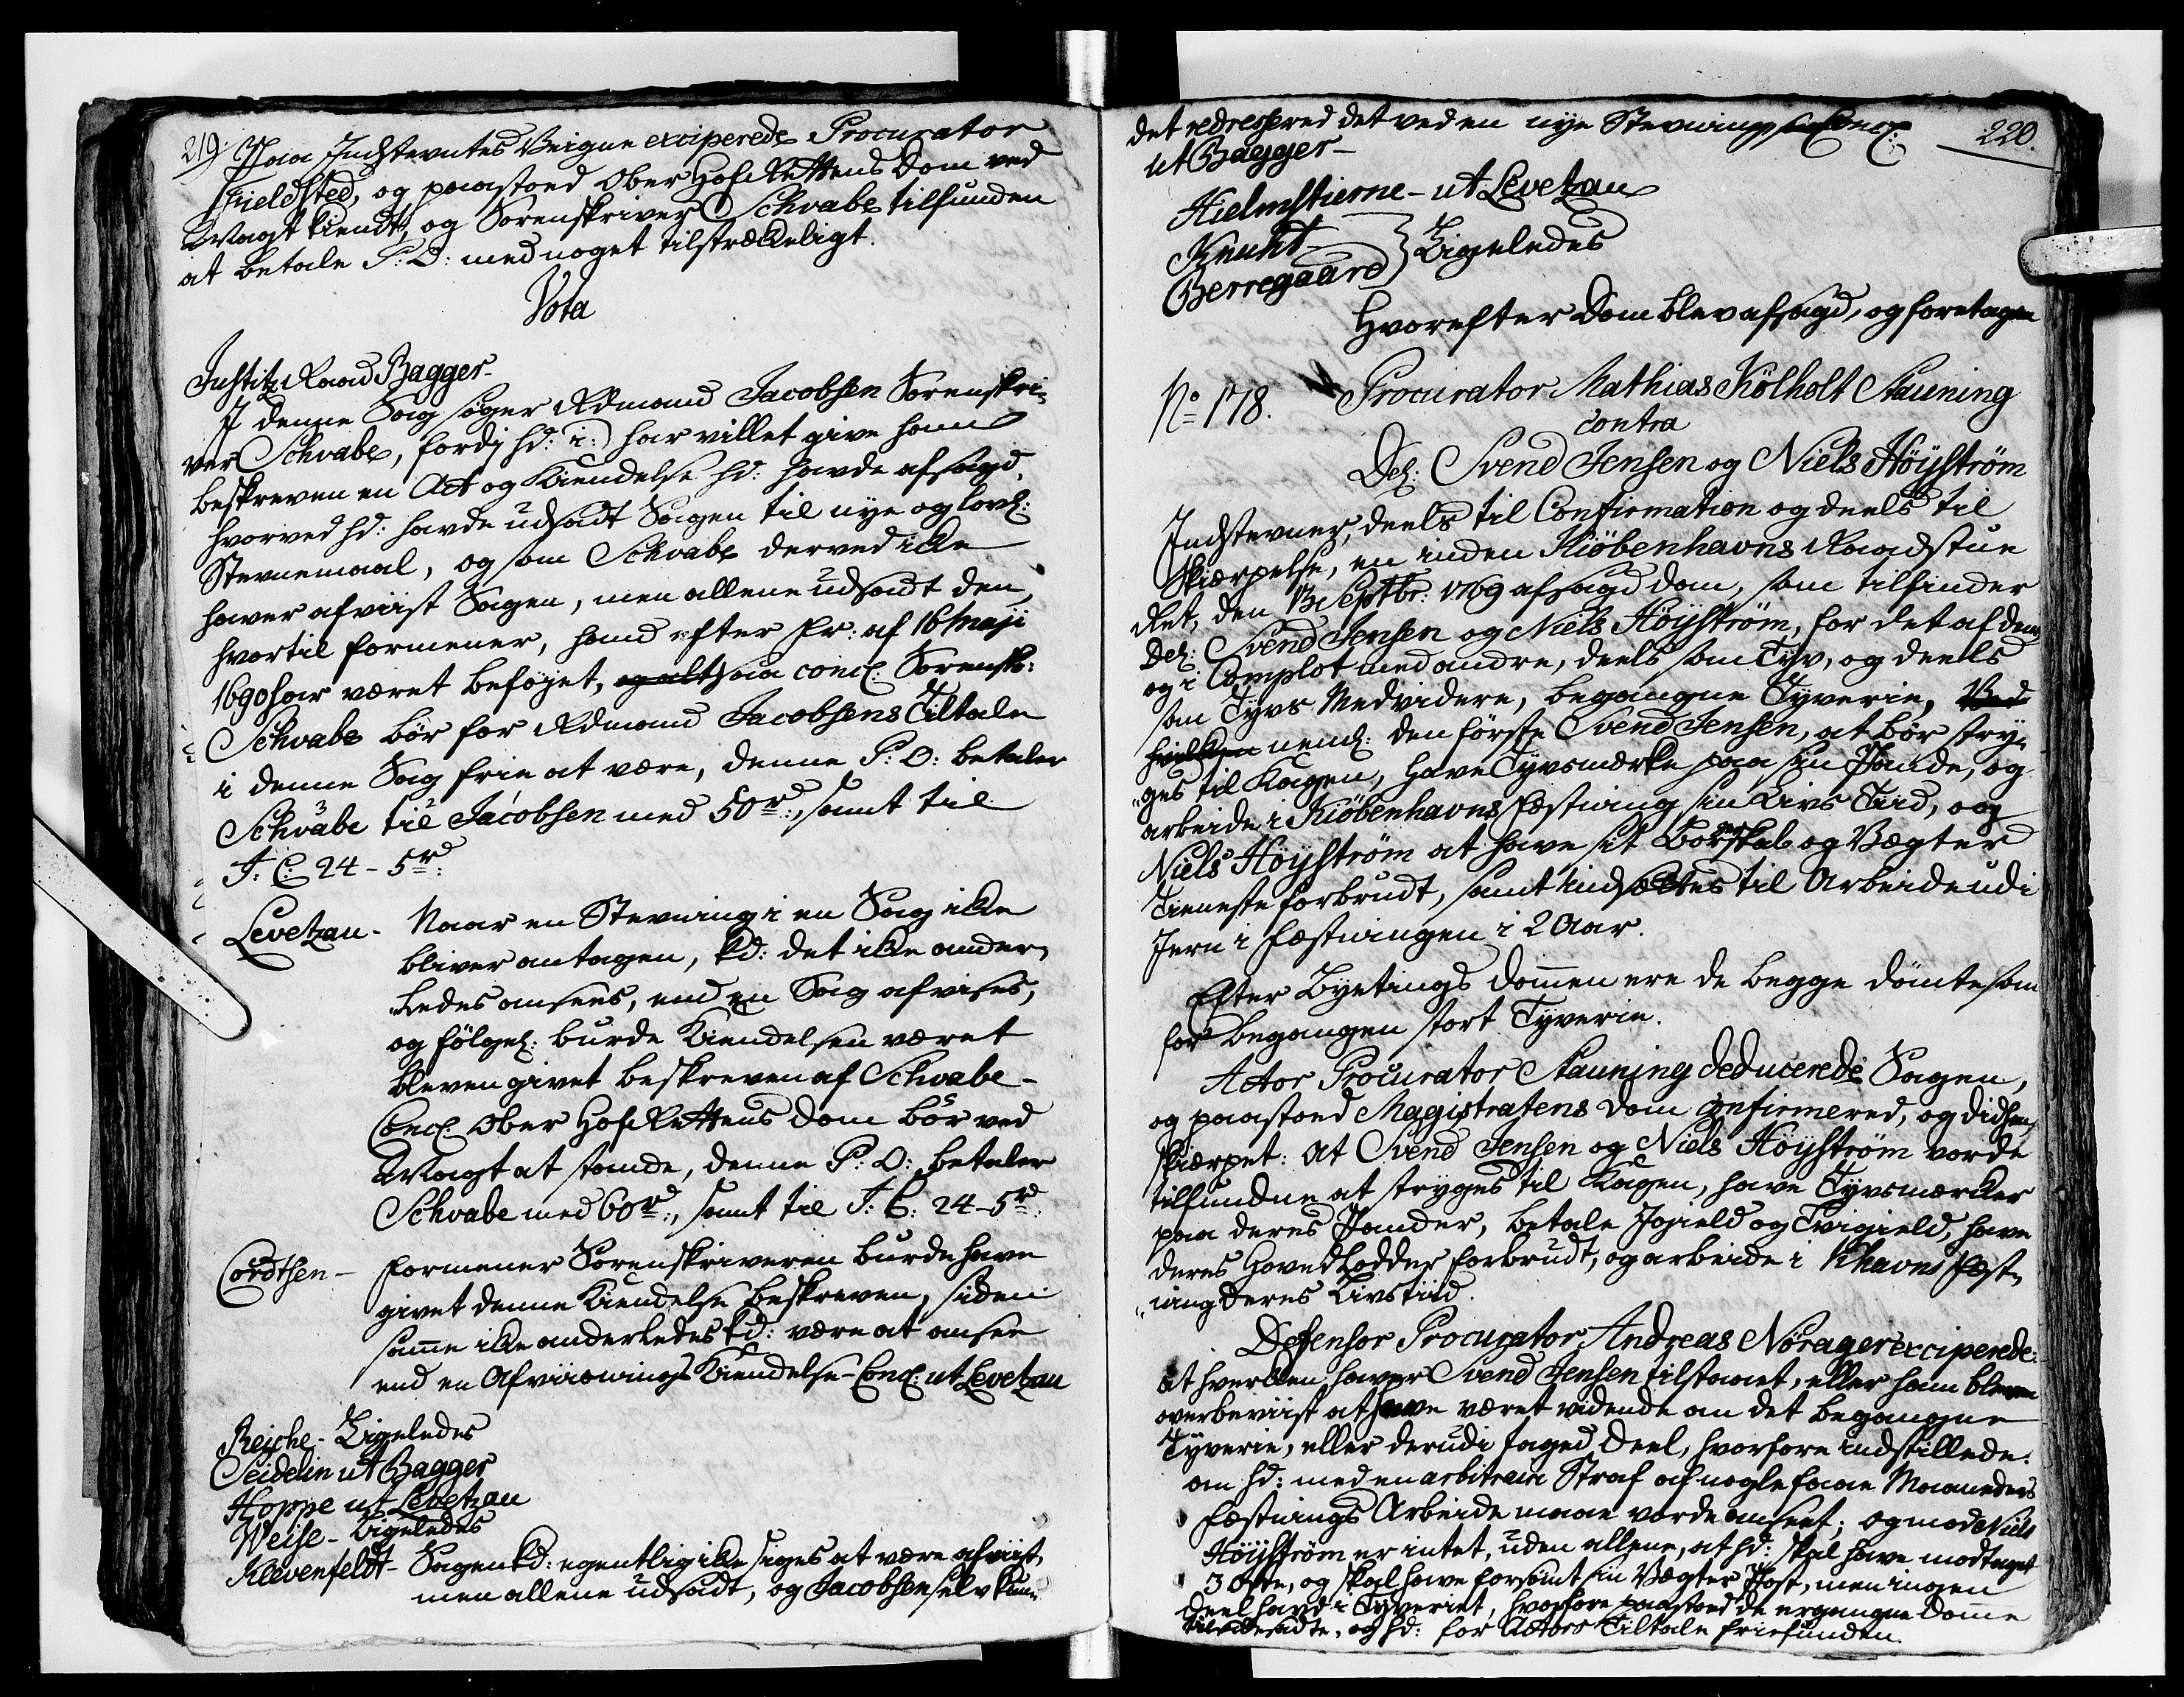 219.
Paa Indstevntes Veigne exciperede Procurator
Fieldsted, og paastoed Ober Hof Rettens Dom ved
Magt kiendt, og Sorenskriver Schvabe tilfunden
at betale P: O: med noget tilstrækkeligt.
Vota
Justitz Raad Bagger-
I denne Sag søger Admand Jacobsen Sorenskri-
ver Schvabe, fordj hd: i: har villet give ham
beskreven en Act og Kiendelse hd: havde afsagd,
hvorved hd: havde udsadt Sagen til nye og lovl:
Stevnemaal, og som Schvabe derved ikke
haver afviist Sagen, men allene udsadt den,
hvortil formener, hand efter Fr: af 16 Maji
1690 har været beføjet, og altsaa concl: Sorenskr:
Schvabe bør for Admand Jacobsens Tiltale
i denne Sag frie at være, denne P: O: betaler
Schvabe til Jacobsen med 50 rd:, samt til
J: C: 24 - 5 rd:
Levetzau- Naar en Stevning i en Sag ikke
bliver antagen, kd: det ikke ander-
ledes ansees, end en Sag afvises,
og følgel: burde Kiendelsen været
bleven givet beskreven af Schvabe-
Concl: Ober Hof Rettens Dom bør ved
Magt at stande, denne P: O: betaler
Schvabe med 60 rd:, samt til J: C: 24 - 5 rd:
Cordtsen- formener Sorenskriveren burde have
givet denne Kiendelse beskreven, siden
samme ikke anderledes kd: være at ansee
end en Afviisnings Kiendelse- Concl: ut Levetzau
Reiche- Ligeledes
Seidelin ut Bagger
Hoppe ut Levetzau
Weise- Ligeledes
Klevenfeldt- Sagen kd: egentlig ikke siges at være afviist,
men allene udsadt, og Jacobsen selv kun-
220.
det redressered det ved en nye Stevning Concl:
ut Bagger-
Hielmstierne- ut Levetzau
Knuht
Berregaard } Ligeledes
Hvorefter Dom blev afsagd, og foretagen
No 178. Procurator Mathias Kølholt Stauning
contra
Del: Svend Jensen og Niels Höyström
Indstevner, deels til Confirmation og deels til
Skiærpelse, en inden Kiøbenhavns Raadstue
Ret, den 13 Septbr: 1769 afsagd dom, som tilfinder
Del: Svend Jensen og Niels Höyström, for det af dem
og i Complot med andre, deels som Tyv, og deels
som Tyvs Medvidere, begangne Tyverie, Ved
hvilken neml: den første Svend Jensen, at bør stry-
ges til Kagen, have Tyvsmærke paa sin Pande, og
arbeide i Kiøbenhavns Fæstning sin Livs Tiid, og
Niels Höyström at have sit Borgerskab og Vægter
Tieneste forbrudt, samt indsættes til Arbeide udi
Jern i Fæstningen i 2 Aar.
Efter Byetings dommen ere de begge dømte som
for begangen stort Tyverie.
Actor Procurator Stauning deducerede Sagen,
og paastoed Magistratens Dom confirmered, og didsen
skiærpet: At Svend Jensen og Niels Höyström vorde
tilfundne at stryges til Kagen, have Tyvsmærker
paa deres Pander, betale Igield og Tvigield, have
deres Hoved Lodder forbrudt, og arbeide i Khavns Fæst-
ning deres Livstiid.
Defensor Procurator Andreas Nørager exciperede:
at hverken haver Svend Jensen tilstaaet, eller ham bleven
overbeviist at have været vidende om det begangne
Tyverie, eller derudi taged Deel, hvorfore indstillede:
om hd: med en arbitrair Straf af nogle faae Maaneders
Fæstnings Arbeide maae vorde anseet; og mod Niels
Höyström er intet, uden allene, at hd: skal have modtaget
3 Ohte, og skal have forsömt sin Vægter Post, men ingen
deel havd i Tyveriet, hvorfore paastoed de ergangne domme
tilsidesadte, og hd: for Actors Tiltale friefunden.